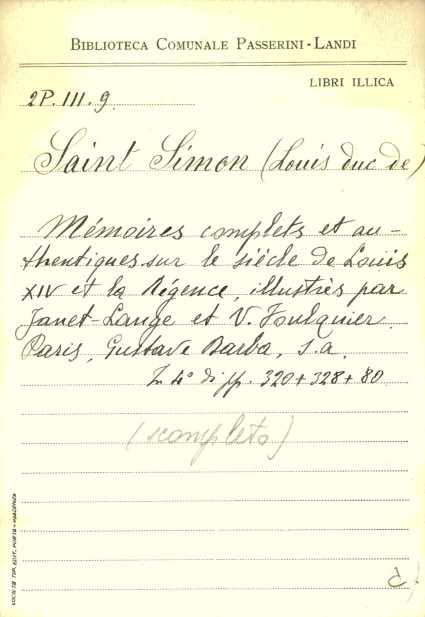 BIBLIOTECA COMUNALE PASSERINI-LANDI
LIBRI ILLICA
2P. III. 9.
Saint Simon (Louis duc de)
Mémoires complets et au-
thentiques sur le siécle de Louis
XIV et la Régence, illustrés par
Janet-Lange et V. Foulquier.
Paris, Gustave Barba, s.a.
In 4° di pp. 320+328+80
(scompleto)